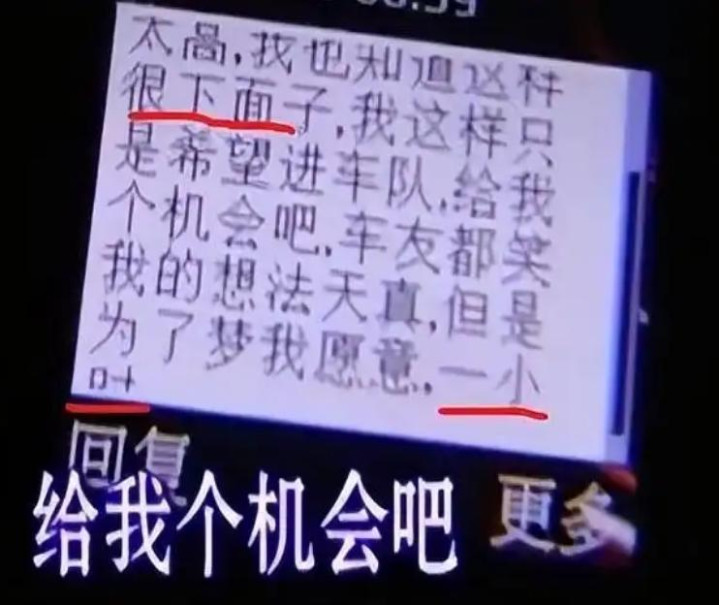 太高,我也知道这种
很下面子,我这样只
是希望进车队,给我
个机会吧,车友都笑
我的想法天真,但是
为了梦我愿意,一小
回复 更多
给我个机会吧